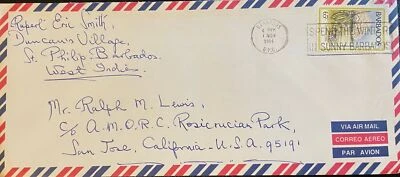 Rupert Eric Smith,
Duncan's Village,
St. Philip, Barbados.
West Indies
BARBADOS
1 NOV
G.P.O.
SPEND THE WINTER
IN SUNNY BARBADOS
BARBADOS
Mr. Ralph M. Lewis,
c/o A.M.O.R.C. Rosicrucian Park,
San Jose, California - U.S.A. 95191
VIA AIR MAIL
CORREO AEREO
PAR AVION